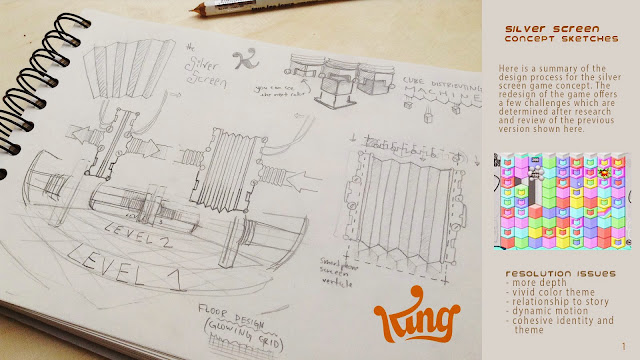 the
Silver
Screen
K
you can see
the next cube
CUBE DISTRIBUTING
MACHINE
LEVEL 2
LEVEL 1
Smartphone
screen
verticle
FLOOR DESIGN
(GLOWING GRID)
King
SILVER SCREEN
CONCEPT SKETCHES
Here is a summary of the
design process for the silver
screen game concept. The
redesign of the game offers
a few challenges which are
determined after research
and review of the previous
version shown here.
RESOLUTION ISSUES
- more depth
- vivid color theme
- relationship to story
- dynamic motion
- cohesive identity and
theme
1